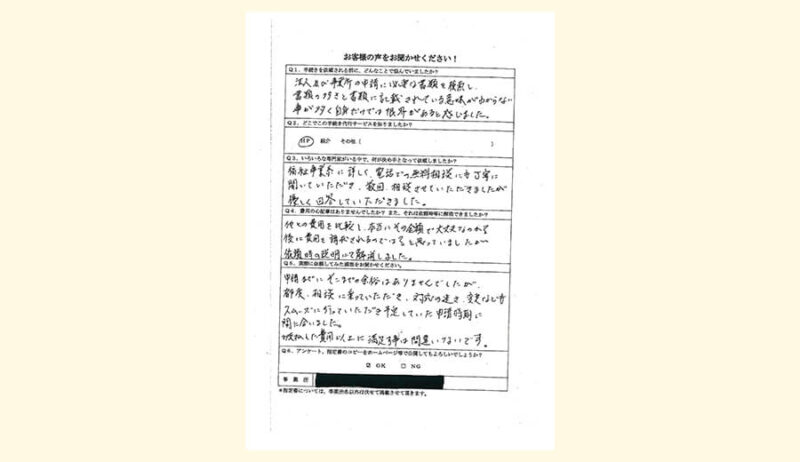 お客様の声をお聞かせください！
Q1．手続きを依頼される前に、どんなことで悩んでいましたか？
法人及び事業所の申請に必要な書類を検索し、
書類の多さと書類に記載されている意味が分からない
事が多く自身だけでは限界があると感じました。
Q2．どこでこの手続き代行サービスを知りましたか？
HP 紹介 その他（ ）
Q3．いろいろな専門家がいる中で、何が決め手となって依頼しましたか？
福祉事業系に詳しく、電話での無料相談にも丁寧に
聞いていただき、数回、相談させていただきましたが
優しく回答していただきました。
Q4．費用の心配事はありませんでしたか？また、それは依頼時等に解消できましたか？
他との費用を比較し、本当にその金額で大丈夫なのか？
後に費用を請求されるのでは？と思っていましたが
依頼時の説明にて解消しました。
Q5．実際に依頼してみた感想をお聞かせください。
申請までにそこまでの余裕はありませんでしたが、
都度、相談に乗っていただき、対応の速さ、変更なども
スムーズに行っていただき予定していた申請時期に
間に合いました。
お支払した費用以上に満足する事は間違いないです。
Q6．アンケート、指定書のコピーをホームページ等で公開してもよろしいでしょうか？
☑ OK □ NG
事業所
＊指定書については、事業所名以外伏せて掲載させて頂きます。